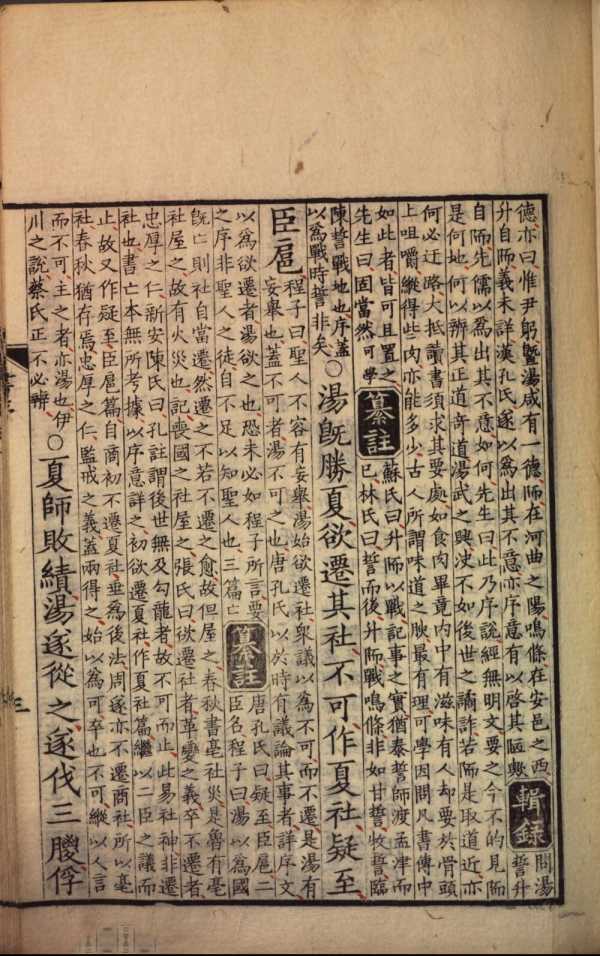 德亦曰惟尹躬曁湯咸有一德陑在河曲之陽鳴條在安邑之西
升自陑義未詳漢孔氏遂以爲出其不意亦序意有以啓其陋歟
輯錄
問湯
誓升
自陑先儒以爲出其不意如何先生曰此乃序説經無明文要之今不的見陑
是何地何以辨其正道竒道湯武之興决不如後世之譎詐若陑是取道近亦
何必迂路大抵讀書須求其要處如食肉畢竟肉中有滋味有人却要於骨頭
上咀嚼縱得些肉亦能多少古人所謂味道之腴最有理可學因問凡書傳中
如此者皆可且置之
先生曰固當然可學
纂註
蘇氏曰升陑以戰記事之實猶泰誓師渡孟津而
已林氏曰誓而後升陑戰鳴條非如甘誓牧誓臨
陳誓戰地也序蓋
以爲戰時誓非矣
○湯旣勝夏欲遷其社不可作夏社疑至
臣扈
程子曰聖人不容有妄舉湯始欲遷社衆議以爲不可而不遷是湯有
妄舉也蓋不可者湯不可之也唐孔氏以於時有議論其事者詳序文
以爲欲遷者湯欲之也恐未必如程子所言要
之序非聖人之徒自不足以知聖人也三篇亡
纂註
唐孔氏曰疑至臣扈二
臣名程子曰湯以爲國
旣亡則社自當遷然遷之不若不遷之愈故但屋之春秋書亳社災是魯有亳
社屋之故有火災也記喪國之社屋之張氏曰欲遷社者革變之義卒不遷者
忠厚之仁新安陳氏曰孔註謂後世無及勾龍者故不可而止此易社神非遷
社也書亡本無所考據以序意詳之初欲遷夏社作夏社篇繼以二臣之議而
止故又作疑至臣扈篇自商初不遷夏社垂爲後法周遂亦不遷商社所以亳
社春秋猶存焉忠厚之仁監戒之義蓋兩得之始以爲可卒也不可縱以人言
而不可主之者亦湯也伊
川之説蔡氏正不必辨
○夏師敗績湯遂從之遂伐三朡俘